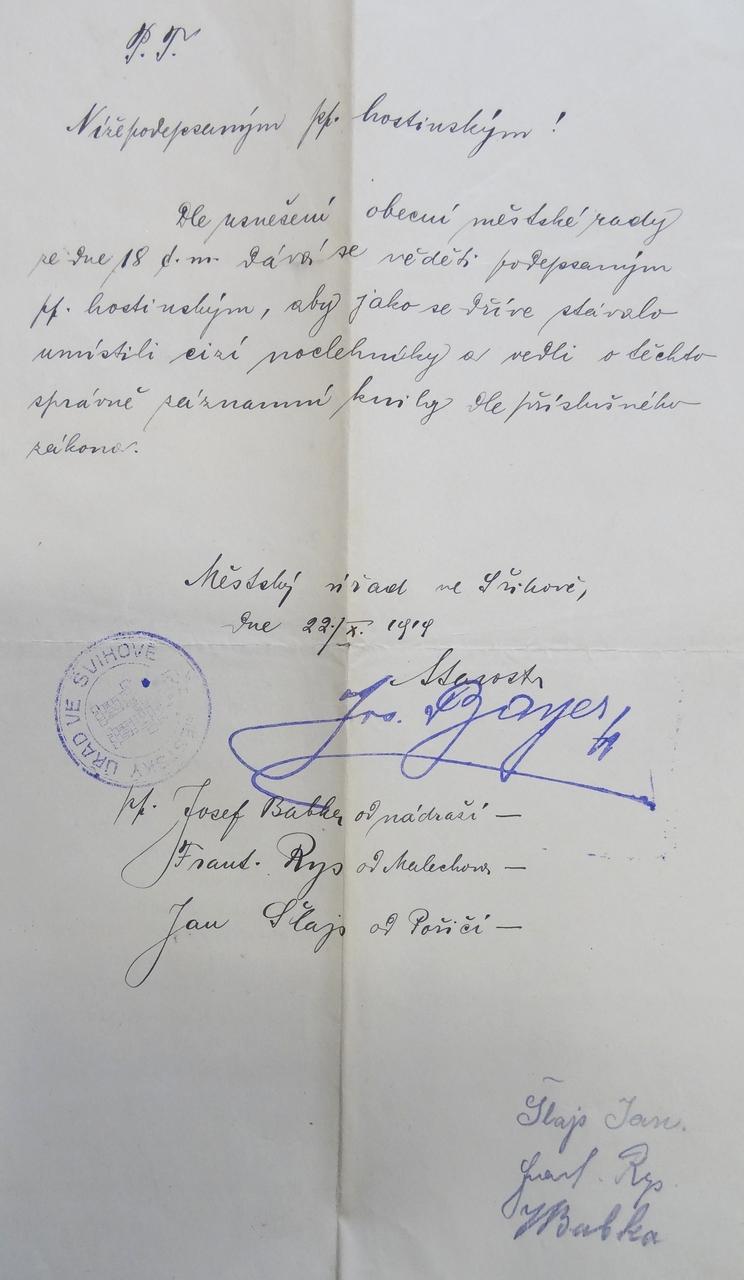 P. T.
Nížepodepsaným pp. hostinským!
Dle usnešení obecní městské rady
ze dne 18 t. m. dává se věděti podepsaným
pp. hostinským, aby jako se dříve stávalo
umístili cizí noclehníky a vedli o těchto
správně záznamní knihy dle příslušného
zákona.
Městský úřad ve Švihově,
dne 22./X. 1919
Starosta
Jos. Bayer
MĚSTSKÝ ÚŘAD VE ŠVIHOVĚ
pp. Josef Babka od nádraží —
Frant. Rys od Malechova —
Jan Šlajs od Poříčí —
Šlajs Jan.
Frant. Rys.
JBabka